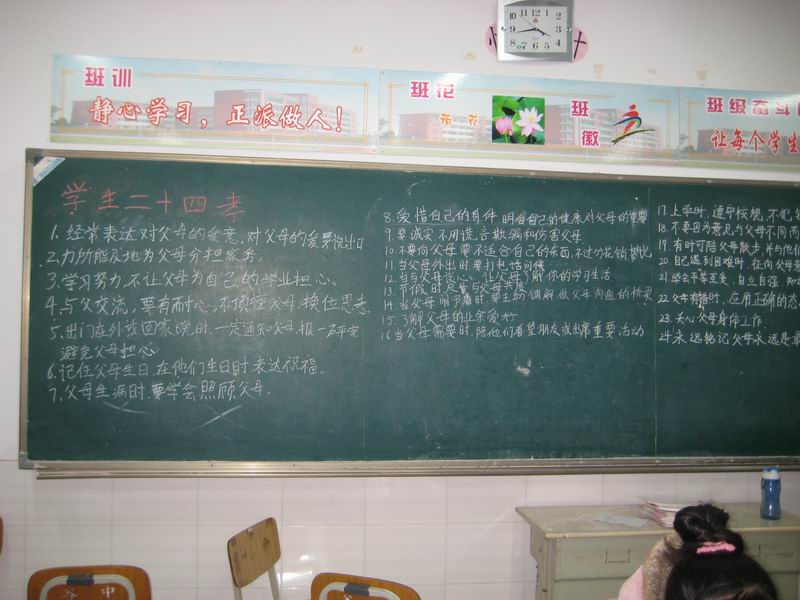 班训
静心学习，正派做人！
班花
荷花
班徽
班级奋斗目
让每个学生
学生二十四孝
1.经常表达对父母的爱意,对父母的爱要说出口
2.力所能及地为父母分担家务.
3.学习努力,不让父母为自己的学业担心.
4.与父交流,要有耐心,不顶撞父母,换位思考.
5.出门在外或回家晚时,一定通知父母,报一声平安
避免父母担心
6.记住父母生日,在他们生日时表达祝福。
7.父母生病时,要学会照顾父母.
8.爱惜自己的身体 明白自己的健康对父母的重要
9.要诚实不用谎言欺骗和伤害父母
10.不要向父母要不适合自己的东西,不过分花钱攀比
11.当父母外出时要打电话问候
12.当父母谈心,让父母了解你的学习生活
13.节假时尽量与父母共度
14.当父母闹矛盾时要主动调解做父母沟通的桥梁
15.了解父母的业余爱好
16.当父母需要时,陪他们看望朋友或出席重要活动
17.上学时,遵守校规,不犯
18.不要因为意见与父母不同而
19.有时可陪父母散步并与他们
20.自己遇到困难时,征询父母意
21.学会平等互爱,自立自强
22.父母有错时,应用正确的态
23.关心父母身体工作
24.永远铭记父母永远是最